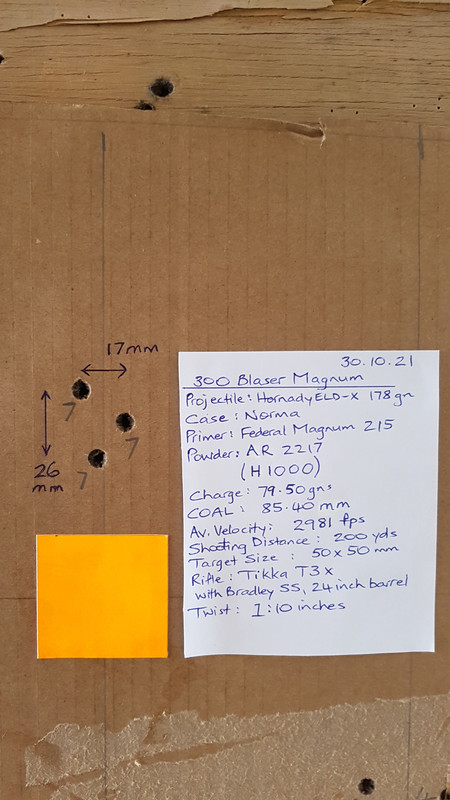 17mm
7
7
7
26
mm
30.10.21
300 Blaser Magnum
Projectile: Hornady ELD-X 178gn
Case: Norma
Primer: Federal Magnum 215
Powder: AR 2217
(H1000)
Charge: 79.50gns
COAL: 85.40 mm
Av. Velocity: 2981 fps
Shooting Distance: 200 yds
Target Size: 50x50 mm
Rifle: Tikka T3x
with Bradley SS, 24 inch barrel
Twist: 1:10 inches